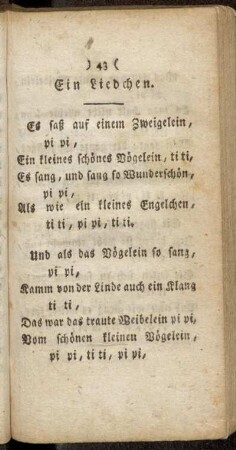 ) 43 (
Ein Liedchen.
Es saß auf einem Zweigelein,
pi pi,
Ein kleines schönes Vögelein, ti ti,
Es sang, und sang so Wunderschön,
pi pi,
Als wie ein kleines Engelchen,
ti ti, pi pi, ti ti.
Und als das Vögelein so sang,
pi pi,
Kamm von der Linde auch ein Klang
ti ti,
Das war das traute Weibelein pi pi,
Vom schönen kleinen Vögelein,
pi pi, ti ti, pi pi,